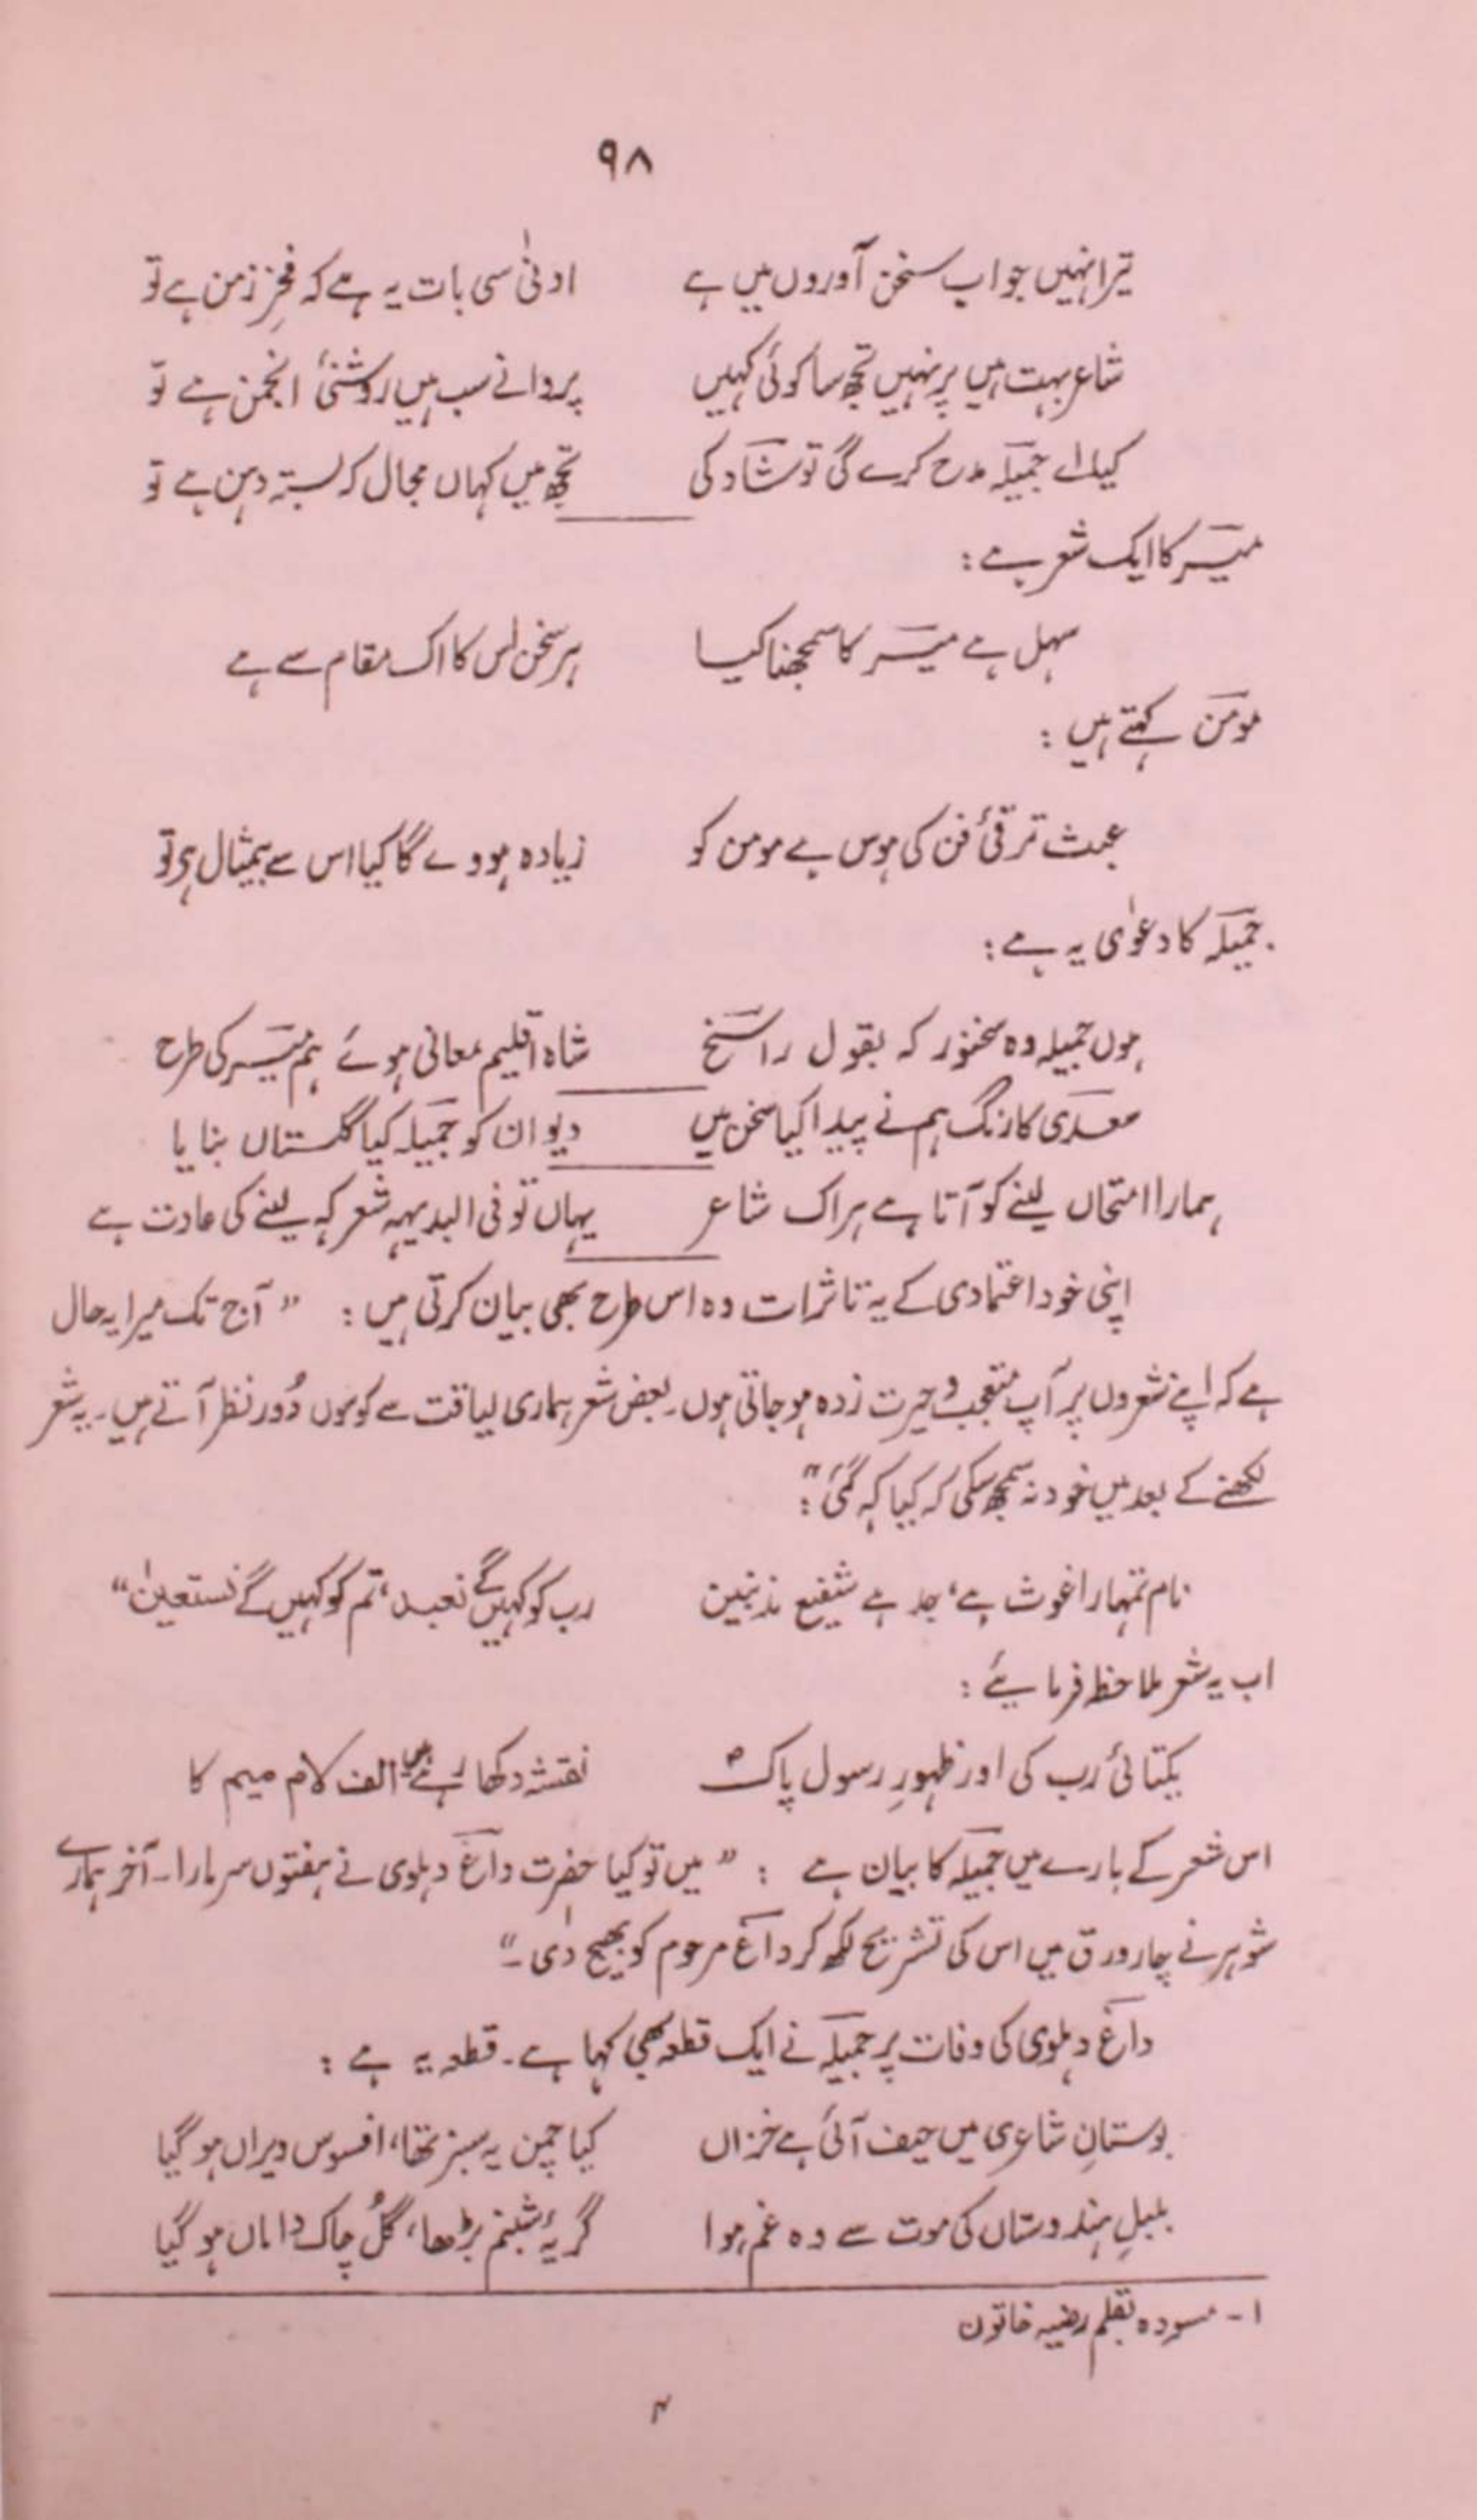 ۹۸
تیرا نہیں جواب سخن آوروں میں ہے ادنیٰ سی بات یہ ہے کہ فخرِ زمن ہے تو
شاعر بہت ہیں پر نہیں تجھ سا کوئی کہیں پروانے سب ہیں روشنئ انجمن ہے تو
کیا اے جمیلہ مدح کرے گی تو شاد کی تجھ میں کہاں مجال کہ بستہ دہن ہے تو
میر کا ایک شعر ہے :
سہل ہے میر کا سمجھنا کیا ہر سخن اس کا اک مقام سے ہے
مومن کہتے ہیں :
عبث ترقئ فن کی ہوس ہے مومن کو زیادہ ہووے گا کیا اس سے بیمثال ہر تو
جمیلہ کا دعوٰی یہ ہے :
ہوں جمیلہ وہ سخنور کہ بقول راسخ شاہ اقلیم معانی ہوئے ہم میر کی طرح
سعدی کا رنگ ہم نے پیدا کیا سخن میں دیوان کو جمیلہ کیا گلستاں بنایا
ہمارا امتحاں لینے کو آتا ہے ہر اک شاعر یہاں تو فی البدیہہ شعر کہہ لینے کی عادت ہے
اپنی خود اعتمادی کے یہ تاثرات وہ اس طرح بھی بیان کرتی ہیں : ” آج تک میرا یہ حال
ہے کہ اپنے شعروں پر آپ متعجب و حیرت زدہ ہو جاتی ہوں۔ بعض شعر ہماری لیاقت سے کوسوں دُور نظر آتے ہیں۔ یہ شعر
لکھنے کے بعد میں خود نہ سمجھ سکی کہ کیا کہہ گئی“ :
نام تمہارا غوث ہے، جد ہے شفیع مذنبین رب کو کہیں گے نعبد، تم کو کہیں گے نستعین“
اب یہ شعر ملاحظہ فرمایئے :
یکتائی رب کی اور ظہورِ رسول پاکؐ نقشہ دکھا رہے ہیں الف لام میم کا
اس شعر کے بارے میں جمیلہ کا بیان ہے : ” میں تو کیا حضرت داغ دہلوی نے ہفتوں سر مارا۔ آخر ہمارے
شوہر نے چار ورق میں اس کی تشریح لکھ کر داغ مرحوم کو بھیج دی۔“
داغ دہلوی کی وفات پر جمیلہ نے ایک قطعہ بھی کہا ہے۔ قطعہ یہ ہے :
بوستانِ شاعری میں حیف آئی ہے خزاں کیا چمن یہ سبز تھا، افسوس ویراں ہو گیا
بلبلِ ہندوستاں کی موت سے وہ غم ہوا گریۂ شبنم بڑھا، گُل چاک داماں ہو گیا
۱ - مسودہ بقلم رضیہ خاتون